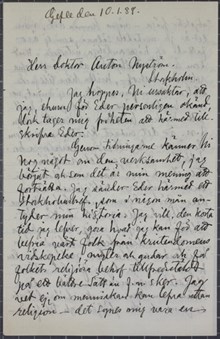 Gefle den 10.1.89.
Herr Doktor Anton Nyström.
Stockholm.
Jag hoppas, Ni ursäktar, att
jag, ehuru för Eder personligen okänd,
dock tager mig friheten att härmed till-
skrifva Eder.
Genom tidningarne känner Ni
nog något om den verksamhet, jag
börjat och som det är min mening att
fortsätta. Jag sänder Eder härmed ett
Stockholmsblad, som i någon mån an-
tyder min historia. Jag vill, den korta
tid jag lefver, göra hvad jag kan för att
befria vårt folk från kristendomens
vidskepelse, myter och
folket religiösa behof tillfredsstäldt
på ett bättre sätt än f.n. sker. Jag
vet ej om menniskan kan lefva utan
religion – det synes mig vara en